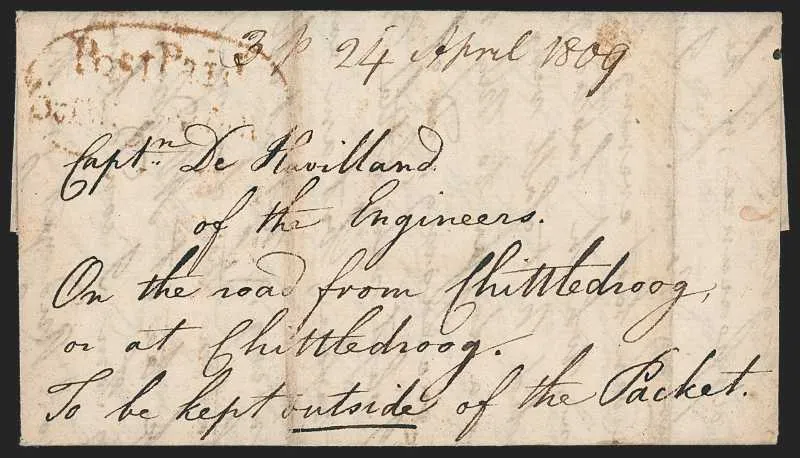 Post Paid
3 p 24 April 1809
Captn De Havilland
of the Engineers.
On the road from Chittledroog,
or at Chittledroog.
To be kept outside of the Packet.